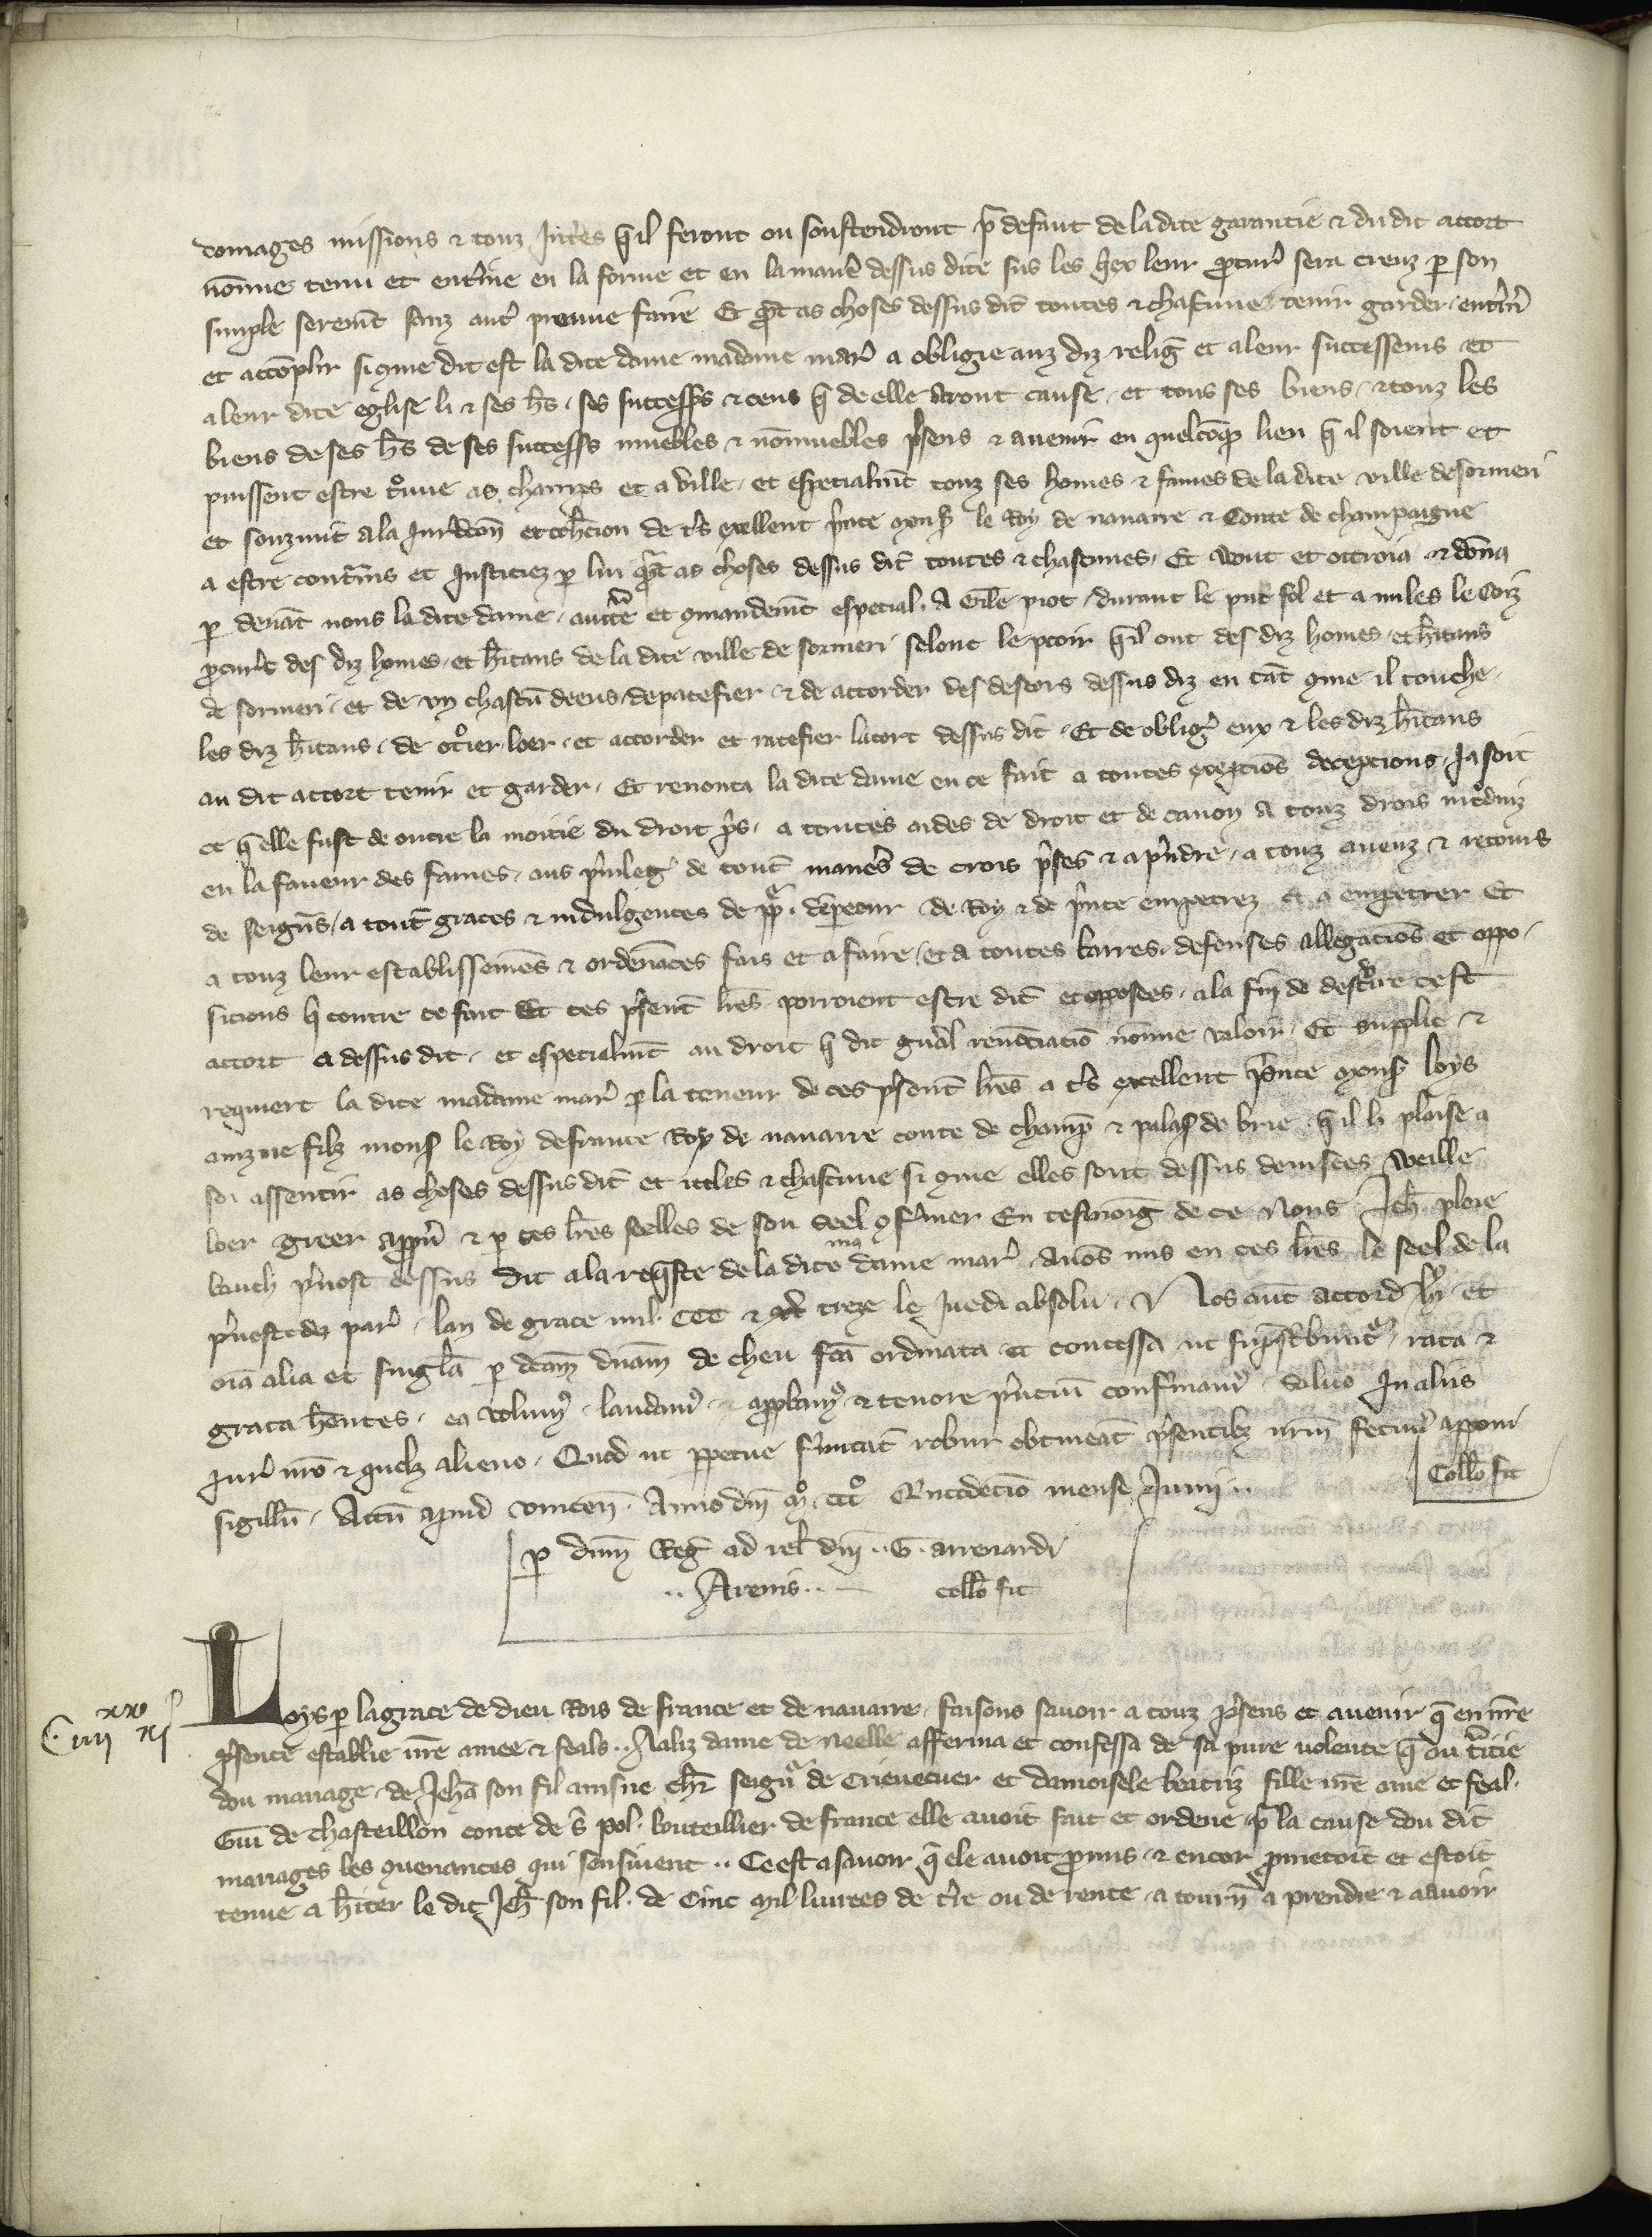 domages missions & touz Int̾es q̃il feront ou soustendront p̃ defaut de ladite garantie & du dit accort
nõmie tenu et ent̾ine en la forme et en la mañe dessus dite sus les q̃ex leur ꝓcur̾ sera creuz ꝑ son
simple serem̃t sanz aut̾ preuue faire Et q̃t as choses dessus dit̃ toutes & chascune tenir garder ent̾in̾
et accõplir si ꝯme dit est la dite dame madame mar̾ a obligie auz diz relig̃ et a leur successeurs et
a leur dite eglise li & ses h̃s ses success̾s & ceus q̃ de elle aront cause et tous ses biens & touz les
biens de ses h̃s de ses success̾s muebles & nõmuebles p̾sens & auenir en quelcõq̃ lieu q̃ il soient et
puissent estre t̾oue as champs et a ville et especialm̃t touz ses homes & fames de la dite ville de sormeri
et souzmit a la Iurid̃con et coh̾cion de t̾s excellent p̾nce monss̾ le Roy de nauarre & Conte de champaigne
a estre cont̾ains et Iusticiez ꝑ lui q̃t as choses dessus dit̃ toutes & chascunes Et vout et ottroia & dõna
ꝑ deuãt nous la dite dame auct̃e et ꝯmandem̃t especial A Gile piot durant le p̃nt fol et a miles le Coiz
ꝓcur̾s des diz homes et h̃itans de la dite ville de sormeri selonc le pooir q̃il ont des diz homes et h̃itans
de sormeri et de vn chascũ deeus de pacefier & de accorder des descors dessus diz en tãt ꝯme il touche
les diz h̃itans de ot̾ier loer et accorder et ratefier lacort dessus dit Et de oblig̾ eux & les diz h̃itans
au dit accort tenir et garder Et renonca la dite dame en ce fait a toutes excepciõs decepcions Ia soit
ce q̃ elle fust de outre la moitie du droit p̾s a toutes aides de droit et de canon A touz drois int̾duiz
en la faueur des fames aus p̾uileg̾ de tout̃ mañes de crois p̾ses & a p̾ndre a touz aueuz & retours
de seign̾s a tout̃ graces & indulgences de pp̃ dempeeur de Roy & de p̾nce empetrez & a empetrer Et
a touz leur establissemẽs & ordenãces fais et a faire et a toutes barres defenses allegaciõs et oppo
sicions q̃ contre ce fait & ces p̾sent̃ l̃res porroient estre dit̃ et opposees a la fin de dest̾uire cest
accort ci dessus dit et especialm̃t au droit q̃ dit gñal renũciaciõ nõmie valoir Et supplie &
requiert la dite madame mar̾ ꝑ la teneur de ces p̾sent̃ l̃res a t̾s excellent p̾nce monss̾ loys
ainzne filz monss̾ le Roy de france Roy de nauarre conte de champ̃ & palas̾ de brie q̃ il li plaise a
soi assentir as choses dessus dit̃ et icelles & chascune si ꝯme elles sont dessus deuisees Weille
loer greer appu̾ & ꝑ ces l̃res seelles de son seel ꝯf̾mer En tesmoig̃ de ce Nous Ieh̾ ploie
bauch p̾uost dessus dit a la req̃ste de la dite ma dame mar̾ Auõs mis en ces l̃res le seel de la
p̾uoste de par̾ lan de grace mil CCC & treze le Iuedi absolu Nos aut̃ accord h̾i et
oĩa alia et singl̃a ꝑ dc̃am dñam de cheu fc̃a ordinata et concessa ut sup̾sc̾bunt̾ rata &
grata h̃entes ea volum̾ laudam̾ & approbam̾ & tenore p̾ncium confirmam̾ saluo In aliis
Iur̾ nr̃o & quolz alieno Quod ut ꝑpetue f̾mitat̃ robur obtineat p̾sentibz nr̃m fecim̾ apponi
sigillũ Actũ apud vincen̾ Anno dñi mº cccº Qntodecĩo mense Iunii
Coll̃o fit
ꝑ dñm Reg̃ ad rel̃ dñi G. arrenardi
Arenis coll̃o fit
C iiii xx xi
Loys ꝑ la grace de dieu Rois de france et de nauarre faisons sauoir a touz p̾sens et auenir q̃ en nr̃e
p̾sence establie nr̃e amee & feals Aaliz dame de Neelle afferma et confessa de sa pure volente q̃ ou t̾itie
dou mariage de Ieh̃a son fil ainsne ch̾r seign̾ de Crieuecuer et damoisele beatriz fille nr̃e ame et feal
Gui de chasteillon conte de s̾ pol bouteillier de france elle auoit fait et ordene ꝑ la cause dou dit
mariages les ꝯuenances qui sensiuent Ce est asauoir q̃ ele auoit ꝓmis & encor ꝓmetoit et estoit
tenue a h̾iter le dit Ieh̃ son fil de Cinc mil liurees de t̾re ou de rente a tourn̾ a prendre & a auoir